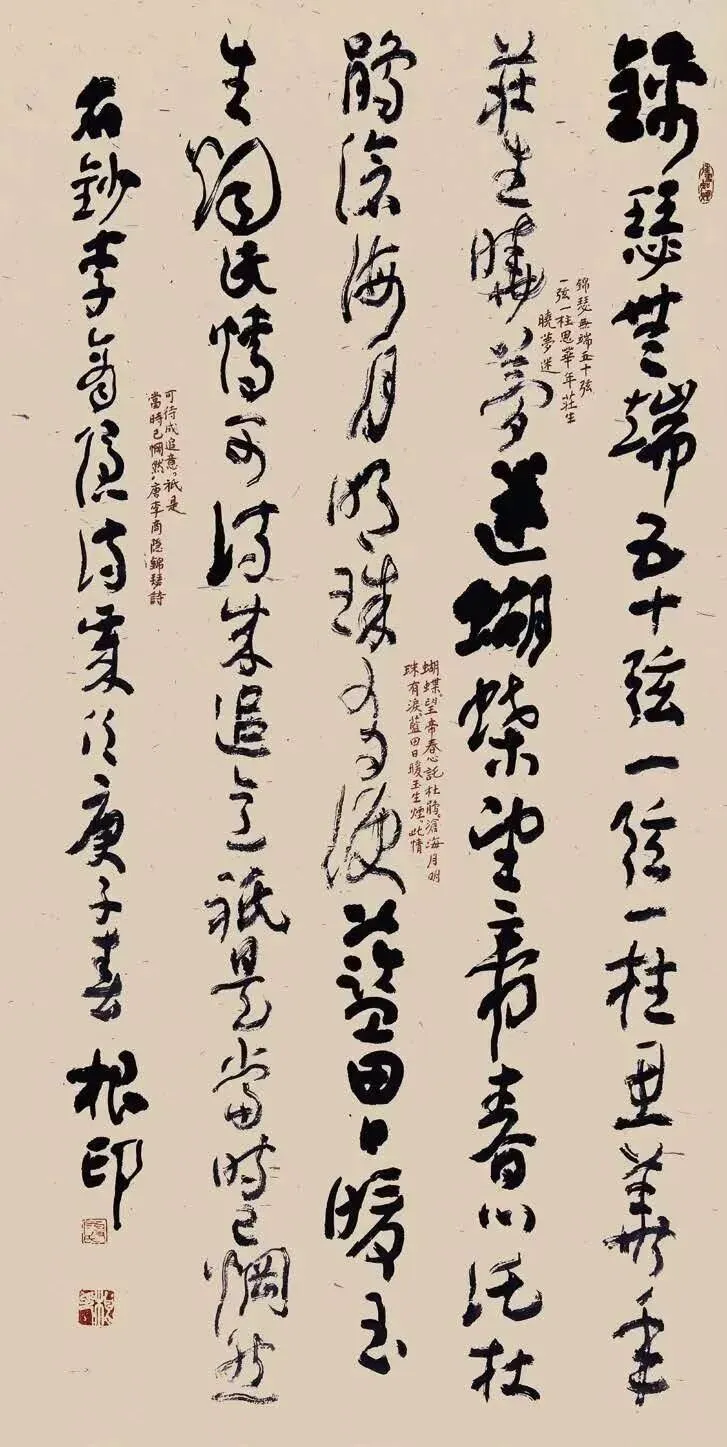 錦瑟無端五十弦一弦一柱思華年
莊生曉夢迷蝴蝶望帝春心託杜
鵑滄海月明珠有淚藍田日暖玉
生煙此情可待成追憶祇是當時已惘然
右鈔李商隱詩歲次庚子春 根印
錦瑟無端五十弦
一弦一柱思華年莊生
曉夢迷
蝴蝶望帝春心託杜鵑滄海月明
珠有淚藍田日暖玉生煙此情
可待成追意祇是
當時已惘然唐李商隱錦瑟詩